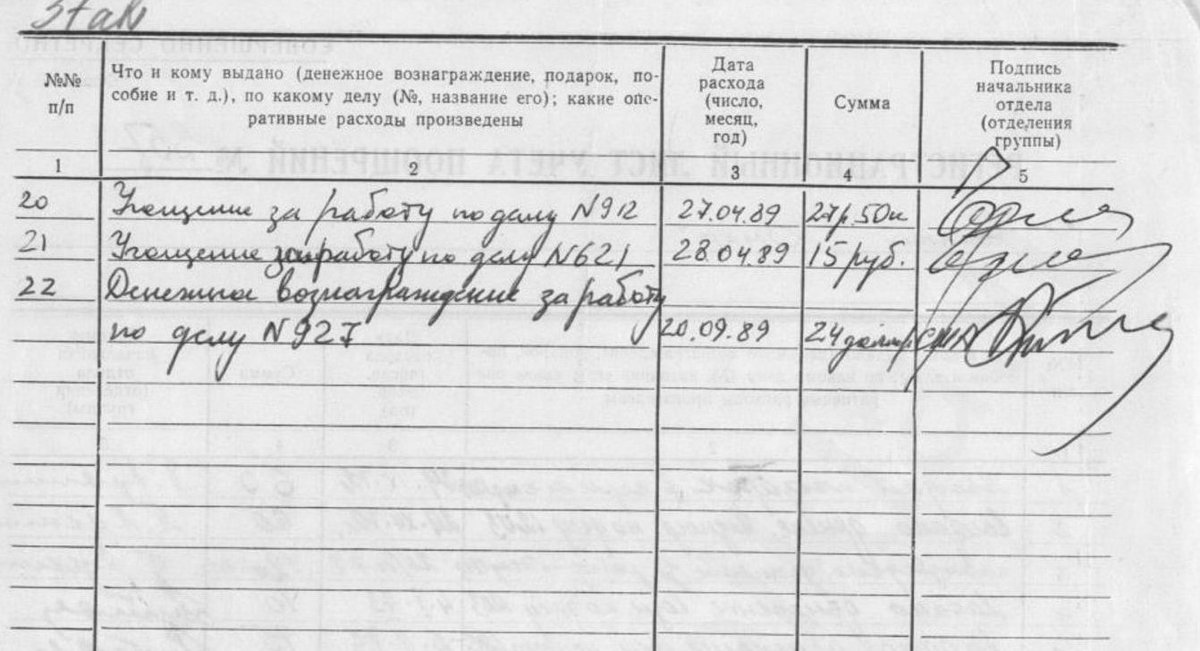 №№ п/п
Что и кому выдано (денежное вознаграждение, подарок, по-
собие и т. д.), по какому делу (№, название его); какие опе-
ративные расходы произведены
Дата
расхода
(число,
месяц,
год)
Сумма
Подпись
начальника
отдела
(отделения
группы)
1 2 3 4 5
20 Угощение за работу по делу N912 27.04.89 27р.50к
21 Угощение за работу по делу N621 28.04.89 15 руб.
22 Денежное вознаграждение за работу
по делу N927 20.09.89 24 долл. США